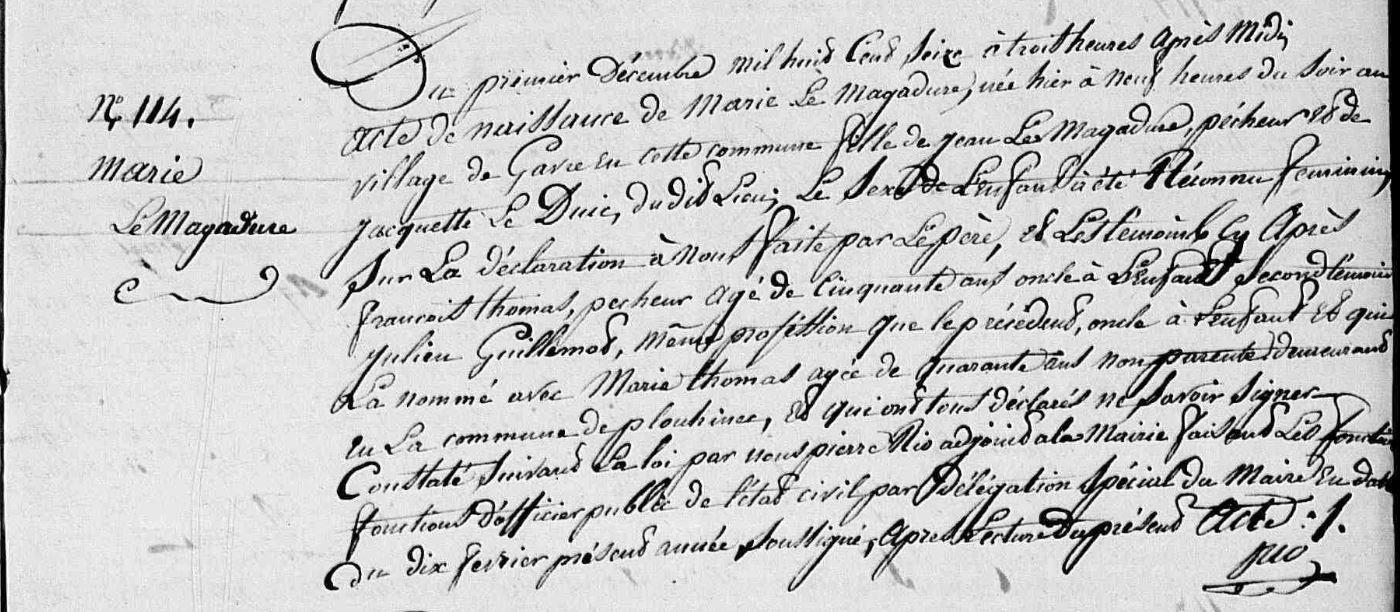 N.° 114.
Marie
Le Magadure
Du premier Décembre mil huit Cent Seize à trois heures Après Midi
Acte de naissance de Marie Le Magadure, née hier à neuf heures du soir au
village de Gavre en cette commune fille de jean Le Magadure, pécheur et de
jacquette Le Duic, dudit Lieu, Le Sexe de L'enfant à été Réconnu féminin,
Sur La déclaration à nous faite par Le père, et Les témoins Cy Après
francois thomas, pecheur agé de Cinquante ans oncle à L'enfant Second témoin
Julien Guillemot, même profession que le précédent, oncle à L'enfant et qui
La nommé avec Marie thomas agée de quarante ans non parente, demeurant
en La commune de plouhinec, et qui ont tous déclarés ne savoir signer
Constaté Suivant La loi par nous pierre Rio adjoint a la Mairie faisant Les
fonctions d'officier public de l'état civil par Délégation Spécial du Maire En date
du dix fevrier présent année, Soussigné, Après Lecture Du présent Acte ./.
Rio